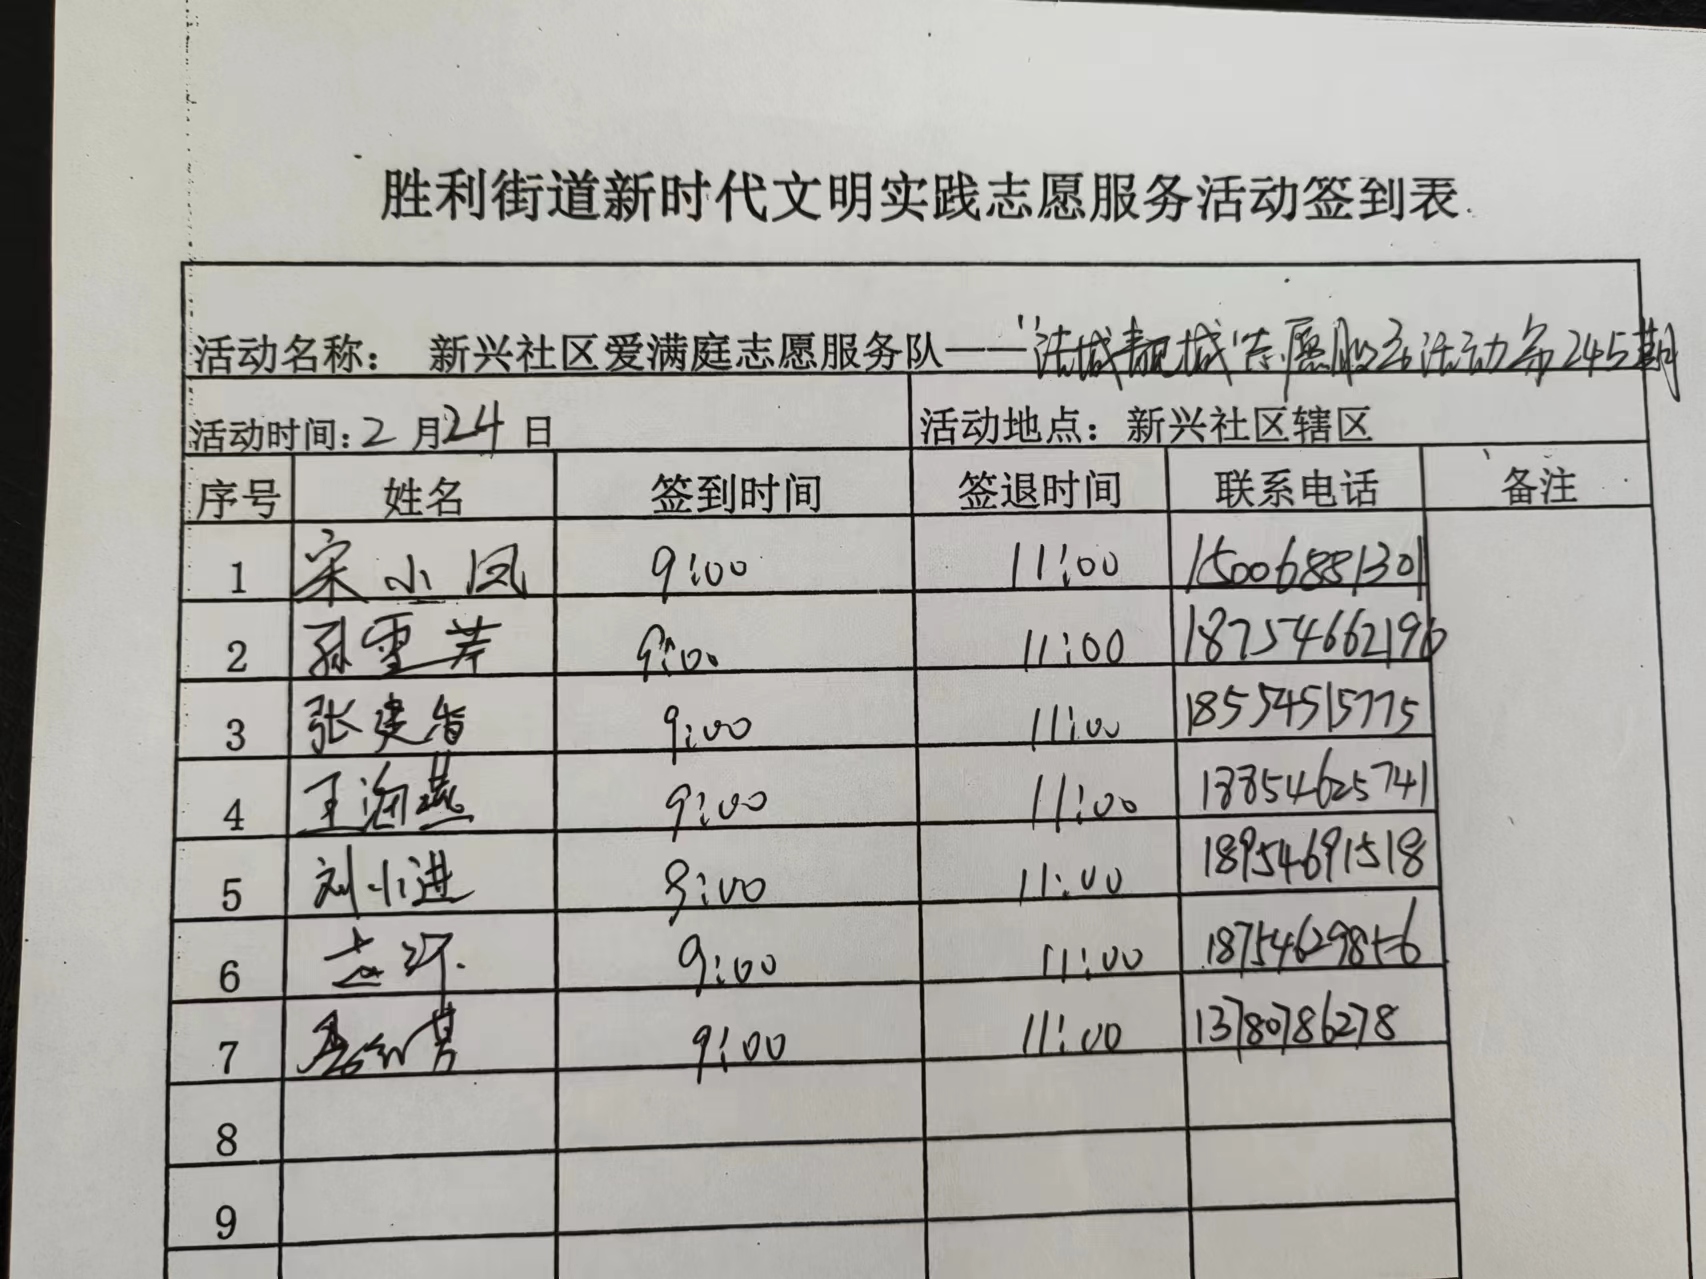 胜利街道新时代文明实践志愿服务活动签到表
活动名称: 新兴社区爱满庭志愿服务队——"洁城靓城"志愿服务活动第245期
活动时间:2月24日 活动地点: 新兴社区辖区
序号 姓名 签到时间 签退时间 联系电话 备注
1 宋小凤 9:00 11:00 15006881301
2 孙雪芹 9:00 11:00 18754662196
3 张建香 9:00 11:00 18554515775
4 王海燕 9:00 11:00 18854625741
5 刘小进 9:00 11:00 18954691518
6 9:00 11:00 18754629856
7 9:00 11:00 13780786278
8
9